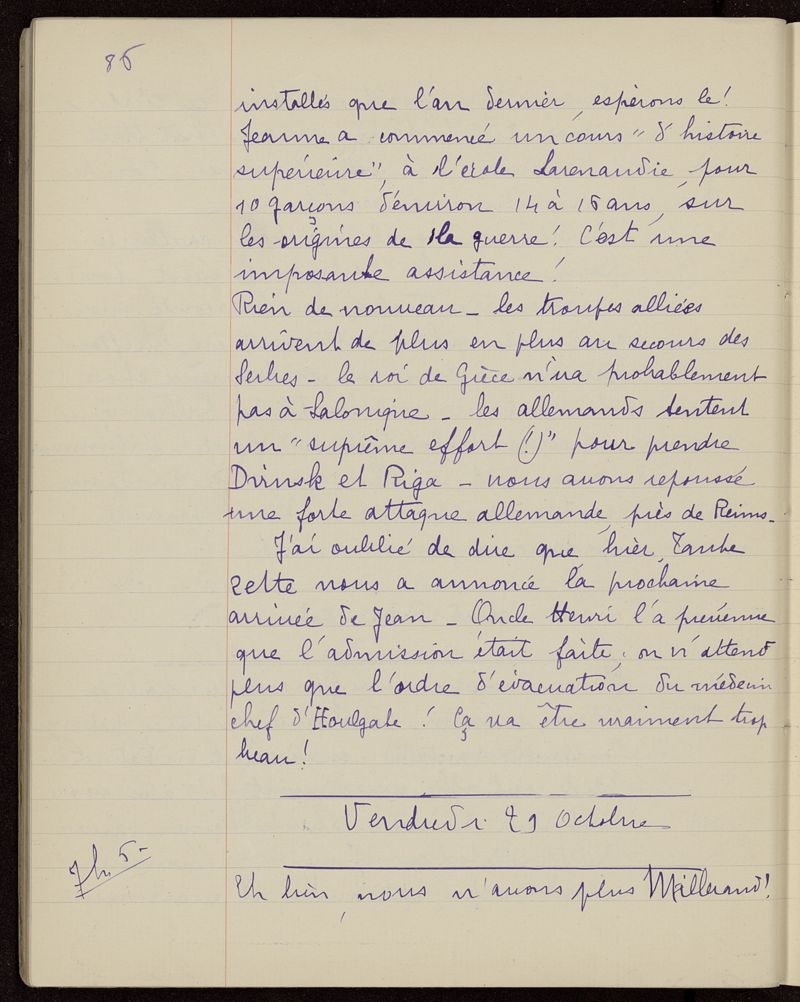 86
installés que l'an dernier, espérons le !
Jeanne a commencé un cours "d'histoire
supérieure", à l'école Larenaudie, pour
10 garçons d'environ 14 à 16 ans, sur
les origines de la guerre ! C'est une
imposante assistance !
Rien de nouveau - les troupes alliées
arrivent de plus en plus au secours des
Serbes - le roi de Grèce n'ira probablement
pas à Salonique - les allemands tentent
un "suprême effort (!)" pour prendre
Dvinsk et Riga - nous avons repoussé
une forte attaque allemande, près de Reims -
J'ai oublié de dire que hier, Tante
Zette nous a annoncé la prochaine
arrivée de Jean - Oncle Henri l'a prévenue
que l'admission était faite, on n'attend
plus que l'ordre d'évacuation du médecin
chef d'Houlgate ! Ça va être vraiment trop
beau !
Vendredi 29 Octobre
7h. 5 -
Eh bien, nous n'avons plus Millerand !